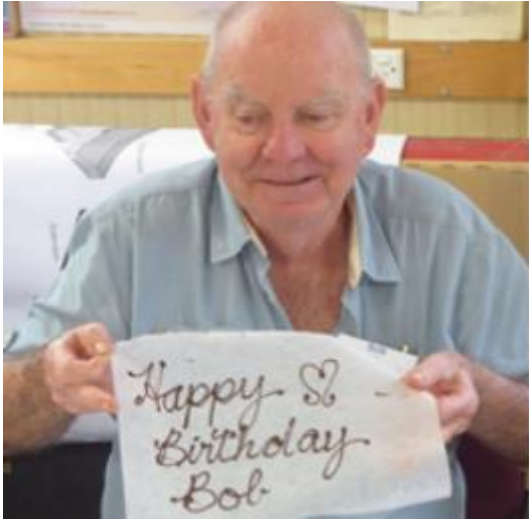 Happy
Birthday
Bob